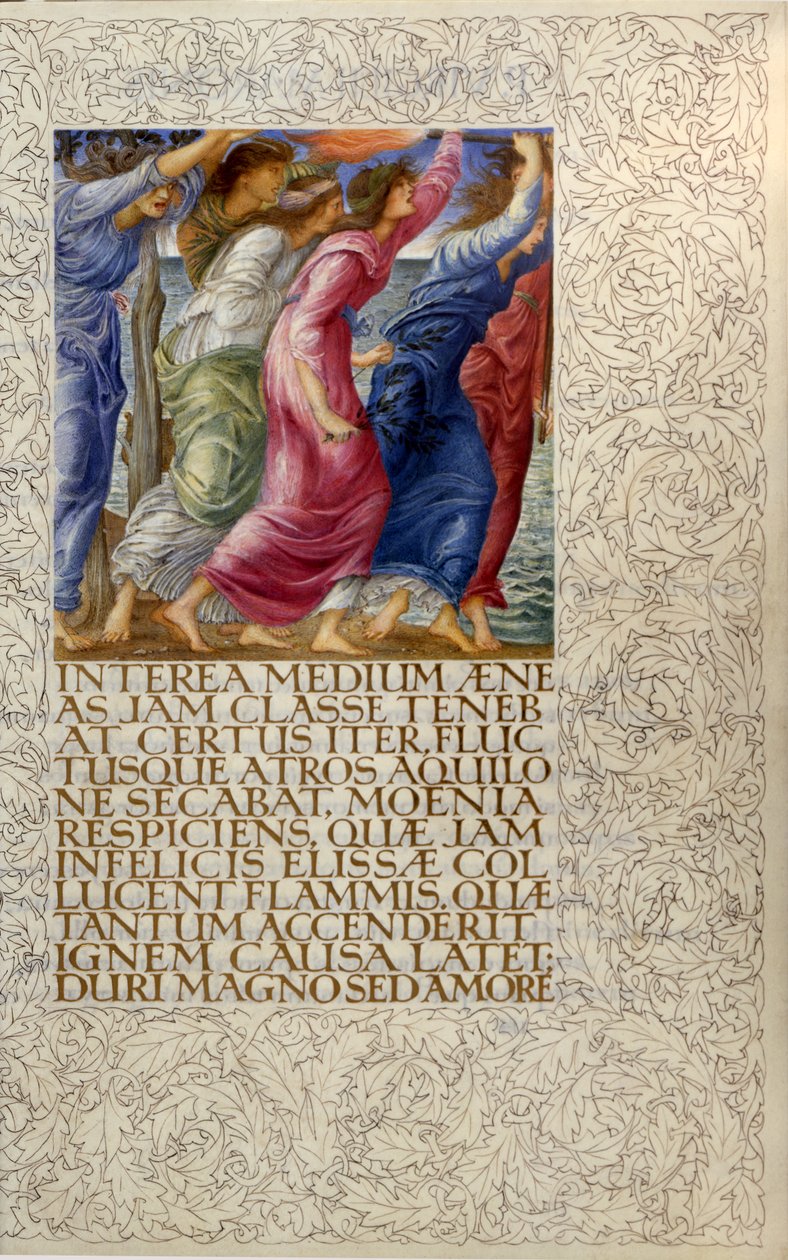 INTEREA MEDIUM ÆNE
AS JAM CLASSE TENEB
AT CERTUS ITER, FLUC
TUSQUE ATROS AQUILO
NE SECABAT, MOENIA
RESPICIENS, QUÆ JAM
INFELICIS ELISSÆ COL
LUCENT FLAMMIS. QUÆ
TANTUM ACCENDERIT
IGNEM CAUSA LATET;
DURI MAGNO SED AMORE